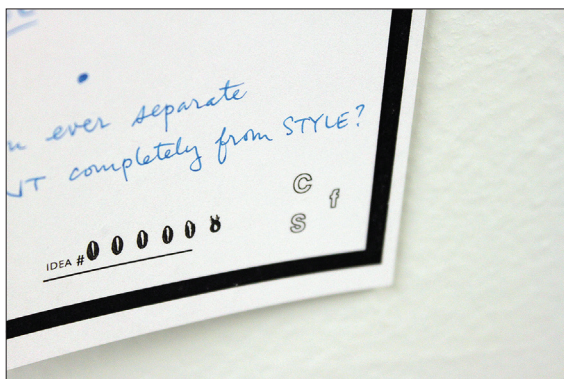 ever separate
completely from STYLE?
C
f
S
IDEA #000008